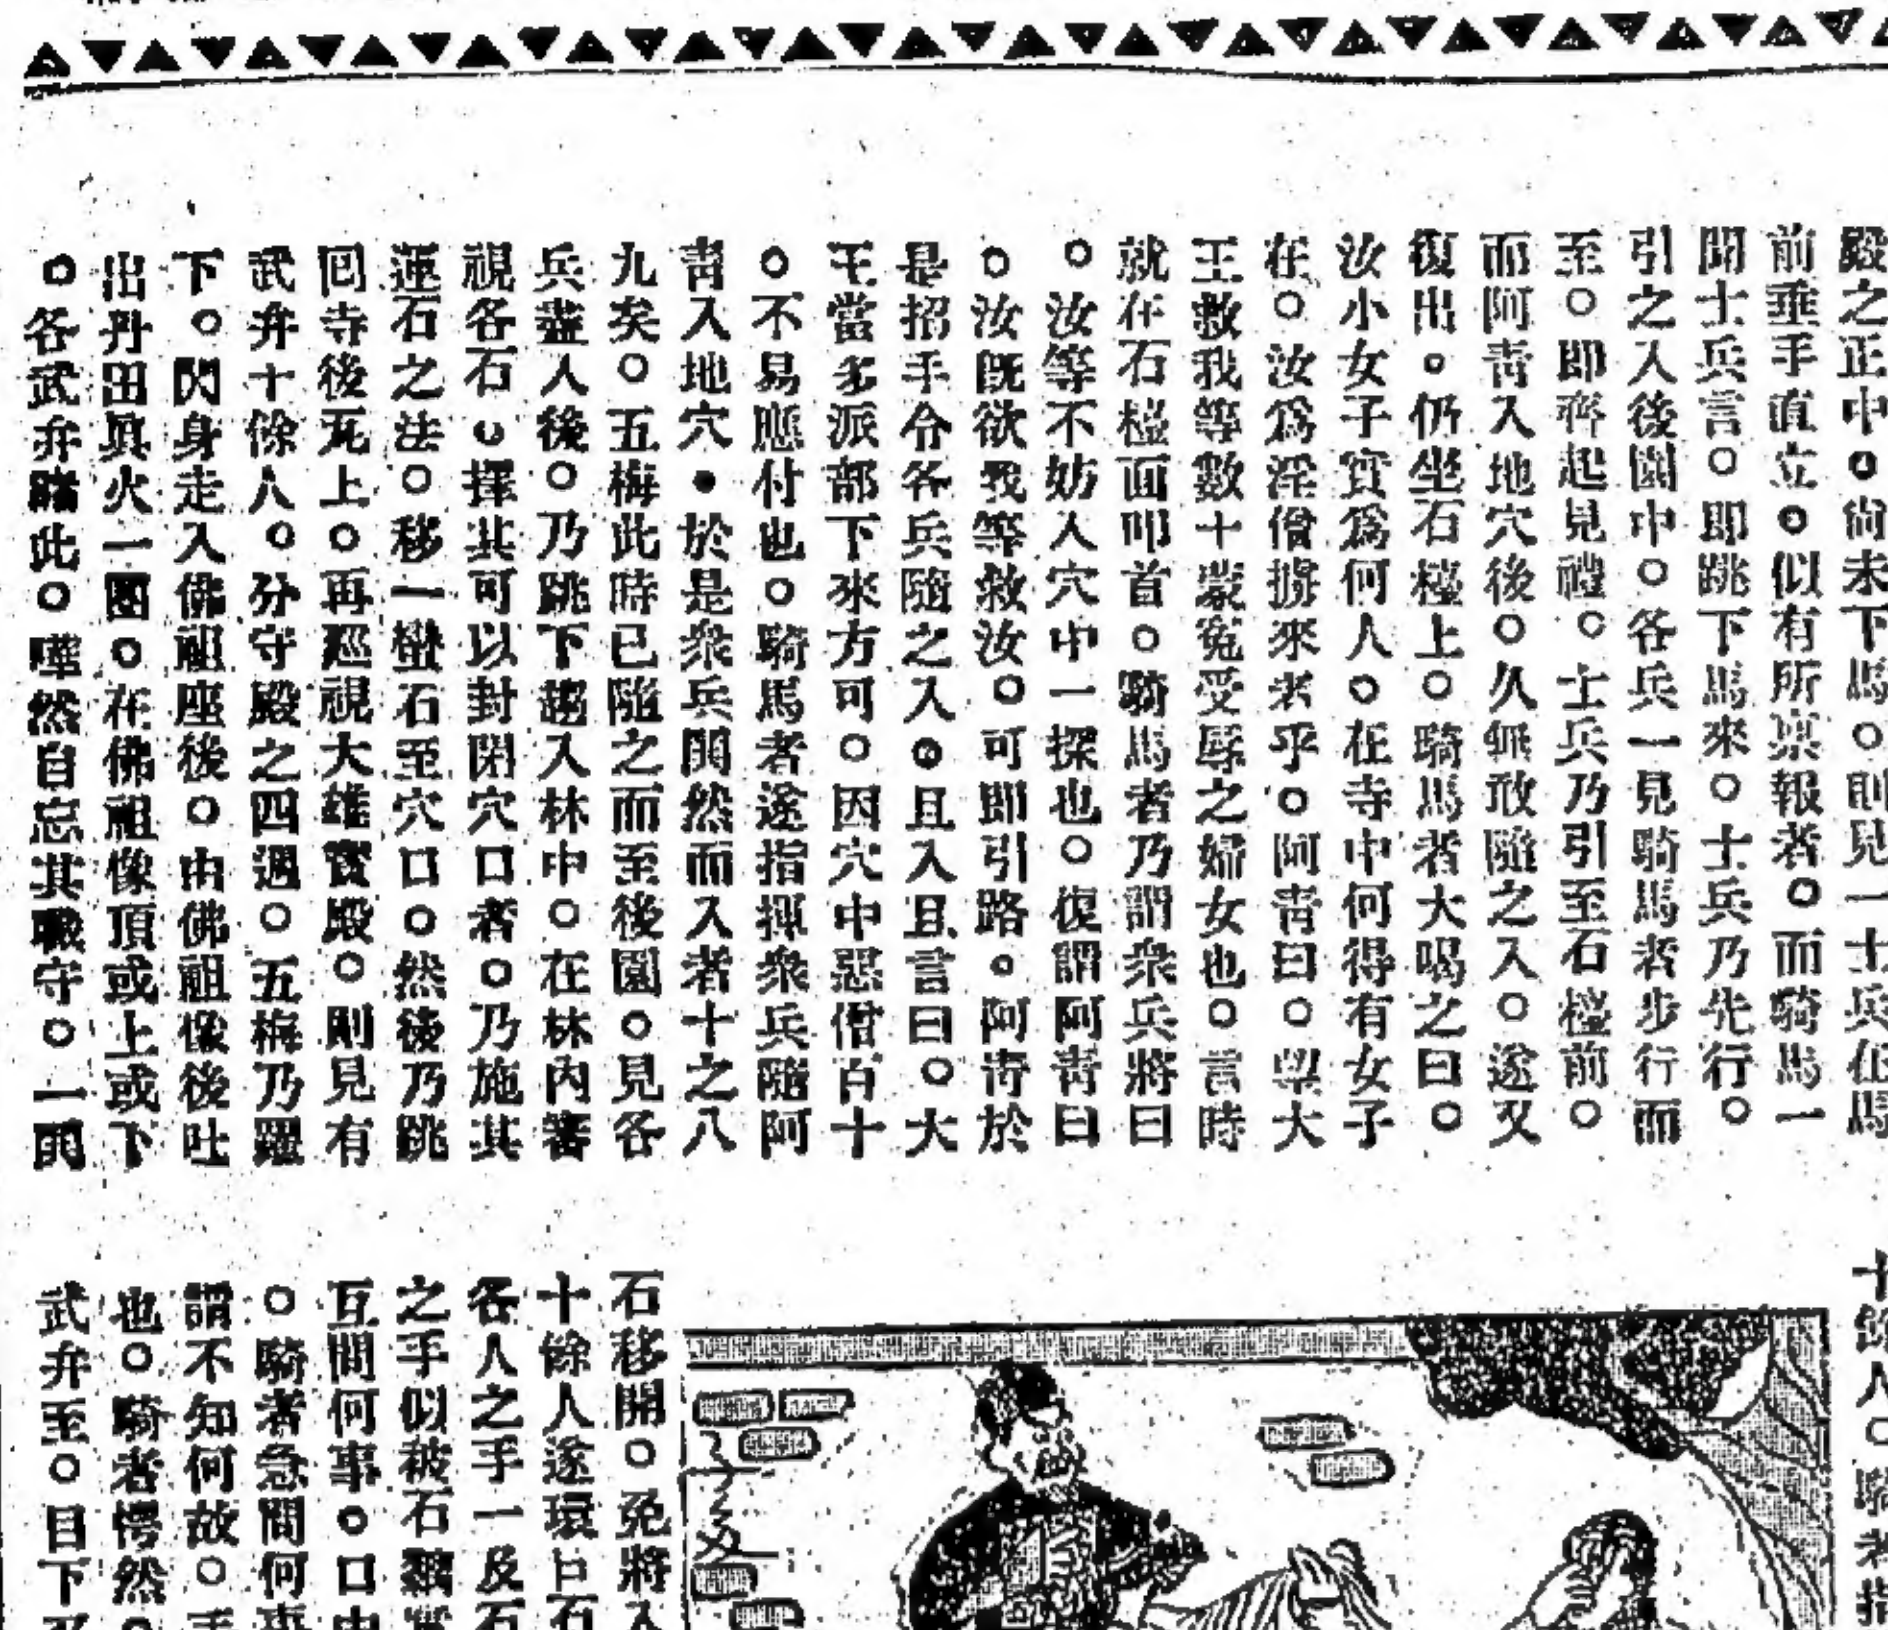 殿之正中。尙未下馬。則見一士兵在馬
前垂手直立。似有所禀報者。而騎馬一
聞士兵言。卽跳下馬來。士兵乃先行。
引之入後園中。各兵一見騎馬者步行而
至。卽齊起見禮。士兵乃引至石櫈前。
而阿靑入地穴後。久無敢隨之入。遂又
復出。仍坐石櫈上。騎馬者大喝之曰。
汝小女子實爲何人。在寺中何得有女子
在。汝爲淫僧擄來者乎。阿靑曰。大
王救我等數十蒙寃受辱之婦女也。言時
就在石櫈面叩首。騎馬者乃謂衆兵將曰
。汝等不妨入穴中一探也。復謂阿靑曰
。汝旣欲我等救汝。可卽引路。阿靑於
是招手令各兵隨之入。且入且言曰。大
王當多派部下來方可。因穴中惡僧百十
。不易應付也。騎馬者遂指揮衆兵隨阿
靑入地穴。於是衆兵鬨然而入者十之八
九矣。五梅此時已隨之而至後園。見各
兵盡入後。乃跳下趨入林中。在林內審
視各石。擇其可以封閉穴口者。乃施其
運石之法。移一蠻石至穴口。然後乃跳
囘寺後瓦上。再廵視大雄寶殿。則見有
武弁十餘人。分守殿之四週。五梅乃躍
下。閃身走入佛祖座後。由佛祖像後吐
出丹田眞火一團。在佛祖像頂或上或下
。各武弁睹此。嘩然自忘其職守。一閧
十餘人。騎者指
石移開。免將入
十餘人遂環巨石
各人之手一反石
之手似被石
互問何事。口中
。騎者急問何事
謂不知何故。手
也。騎者愕然。
武弁至。目下